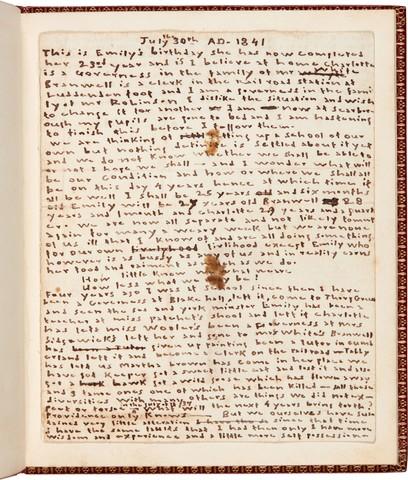 July the 30th AD. 1841
This is Emily's birthday she has now completed
her 23rd year and is I believe at home Charlotte
is a Governess in the family of mr White
Branwell is a clerk in the railroad station at
Luddenden foot and I am a governess in the fami
ly of mr Robinson I dislike the situation and wish
to change it for another I am now at scarbro
ough my pupils are gone to bed and I am hastening
to finish this before I follow them.
we are thinking of setting up a school of our
own but nothing definite is settled about it yet
and we do not know whether we shall be able to
or not I hope we shall and I wonder what will
be our condition and how or where we shall all
be on this day 4 years hence at which time if
all be well I shall be 25 years and six months
old Emily will be 27 years old Branwell 28
years and 1 month and Charlotte 29 years and quart
er. We are now all separate and not likely to meet
again for many a weary week but we are none
of us ill that I know of and all doing something
for our own livelyhood except Emily who
however is as busy as any of us and in reality earns
her food and raiment as much as we do.
How little know we what we are
How less what we may be!
Four years ago I was at school since then I have
been a Governess at Blake hall, left it, come to Thorp Green
and seen the sea and york minster Emily has been a
teacher at miss patchet's school and left it charlotte
has left miss Woolers been a Governess at mrs
Sidgewicks left her and gone to mrs Whites Branwell
has given up painting been a tutor in cumb
erland left it and become a clerk on the railroad Tabby
has left us martha brown has come in her place we
have got Keeper, got a sweet little cat and lost it and also
got a hawk got a wild goose which has flown away
and 3 tame ones one of which has been killed all these
diversities with many others are things we did not ex-
pect or foresee in the July of 1837 what will the next 4 years bring forth?
Providence only knows But we ourselves have sus
tained very little alteration since that time
I have the same faults that I had then only I have more
wisdom and experience and a little more self possession